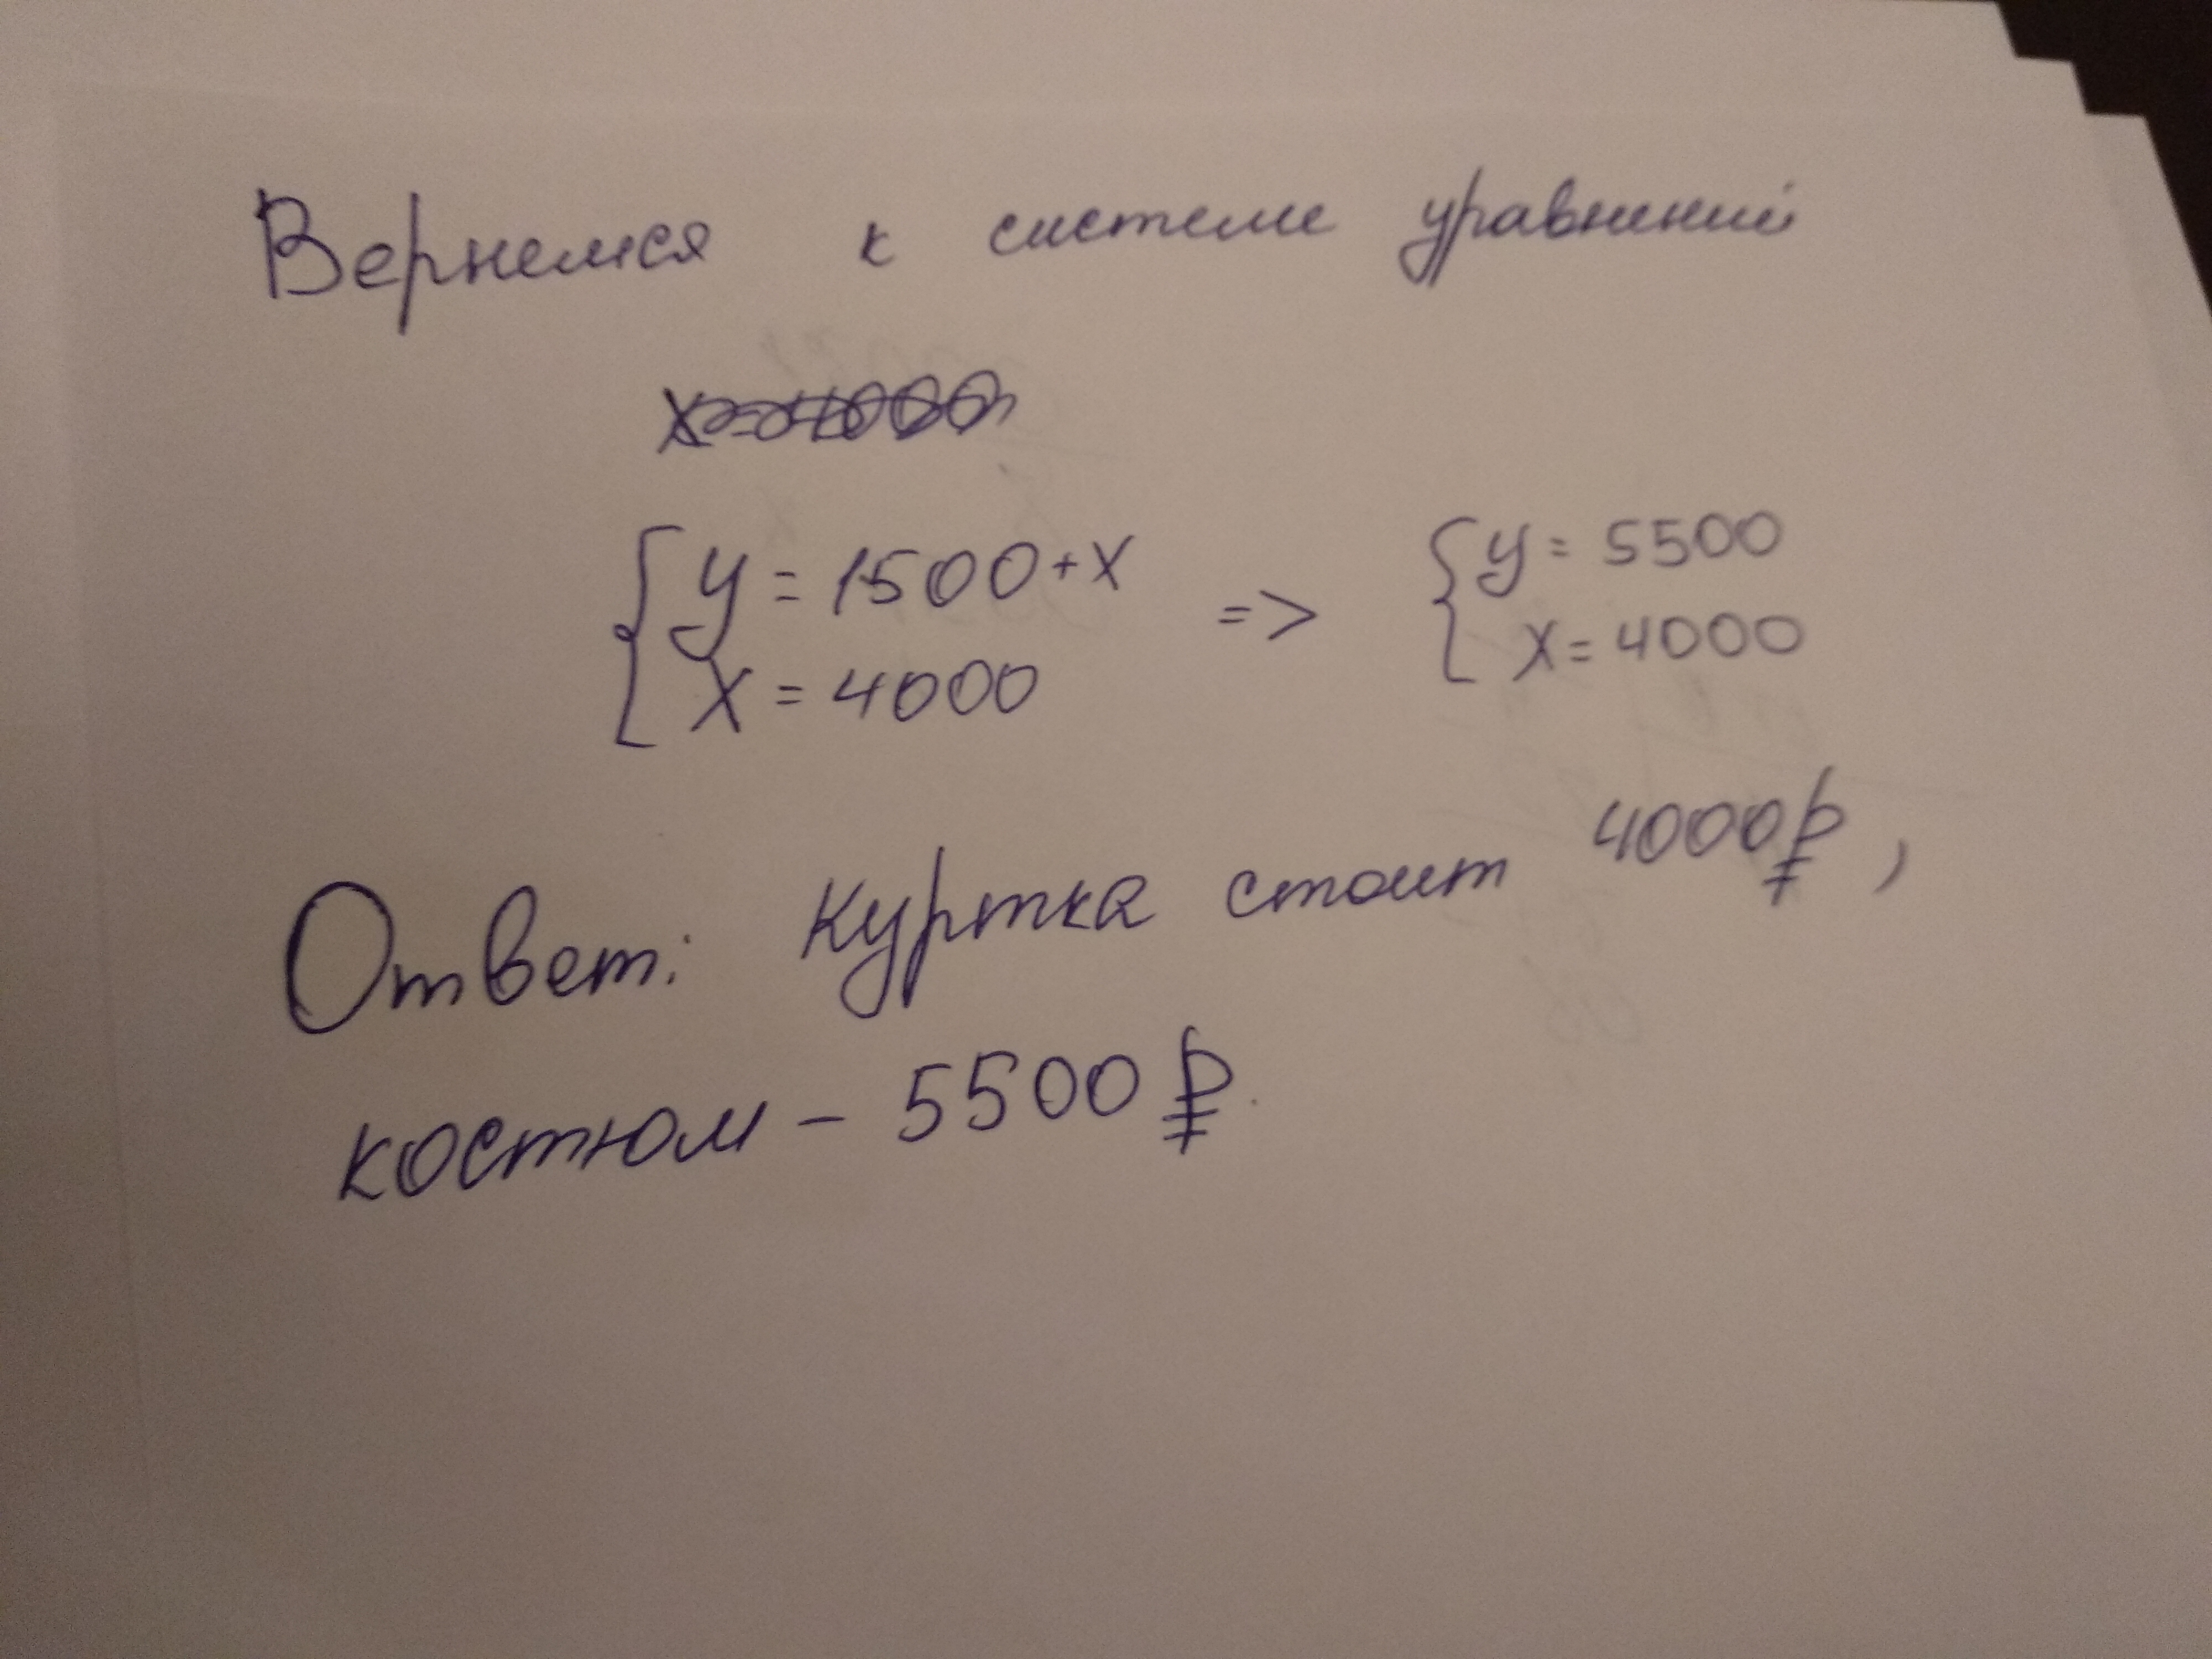 Вернемся к системе уравнений
x=4000
{ y = 1500+x => { y = 5500
x = 4000 x = 4000
Ответ: куртка стоит 4000₽,
костюм – 5500₽.